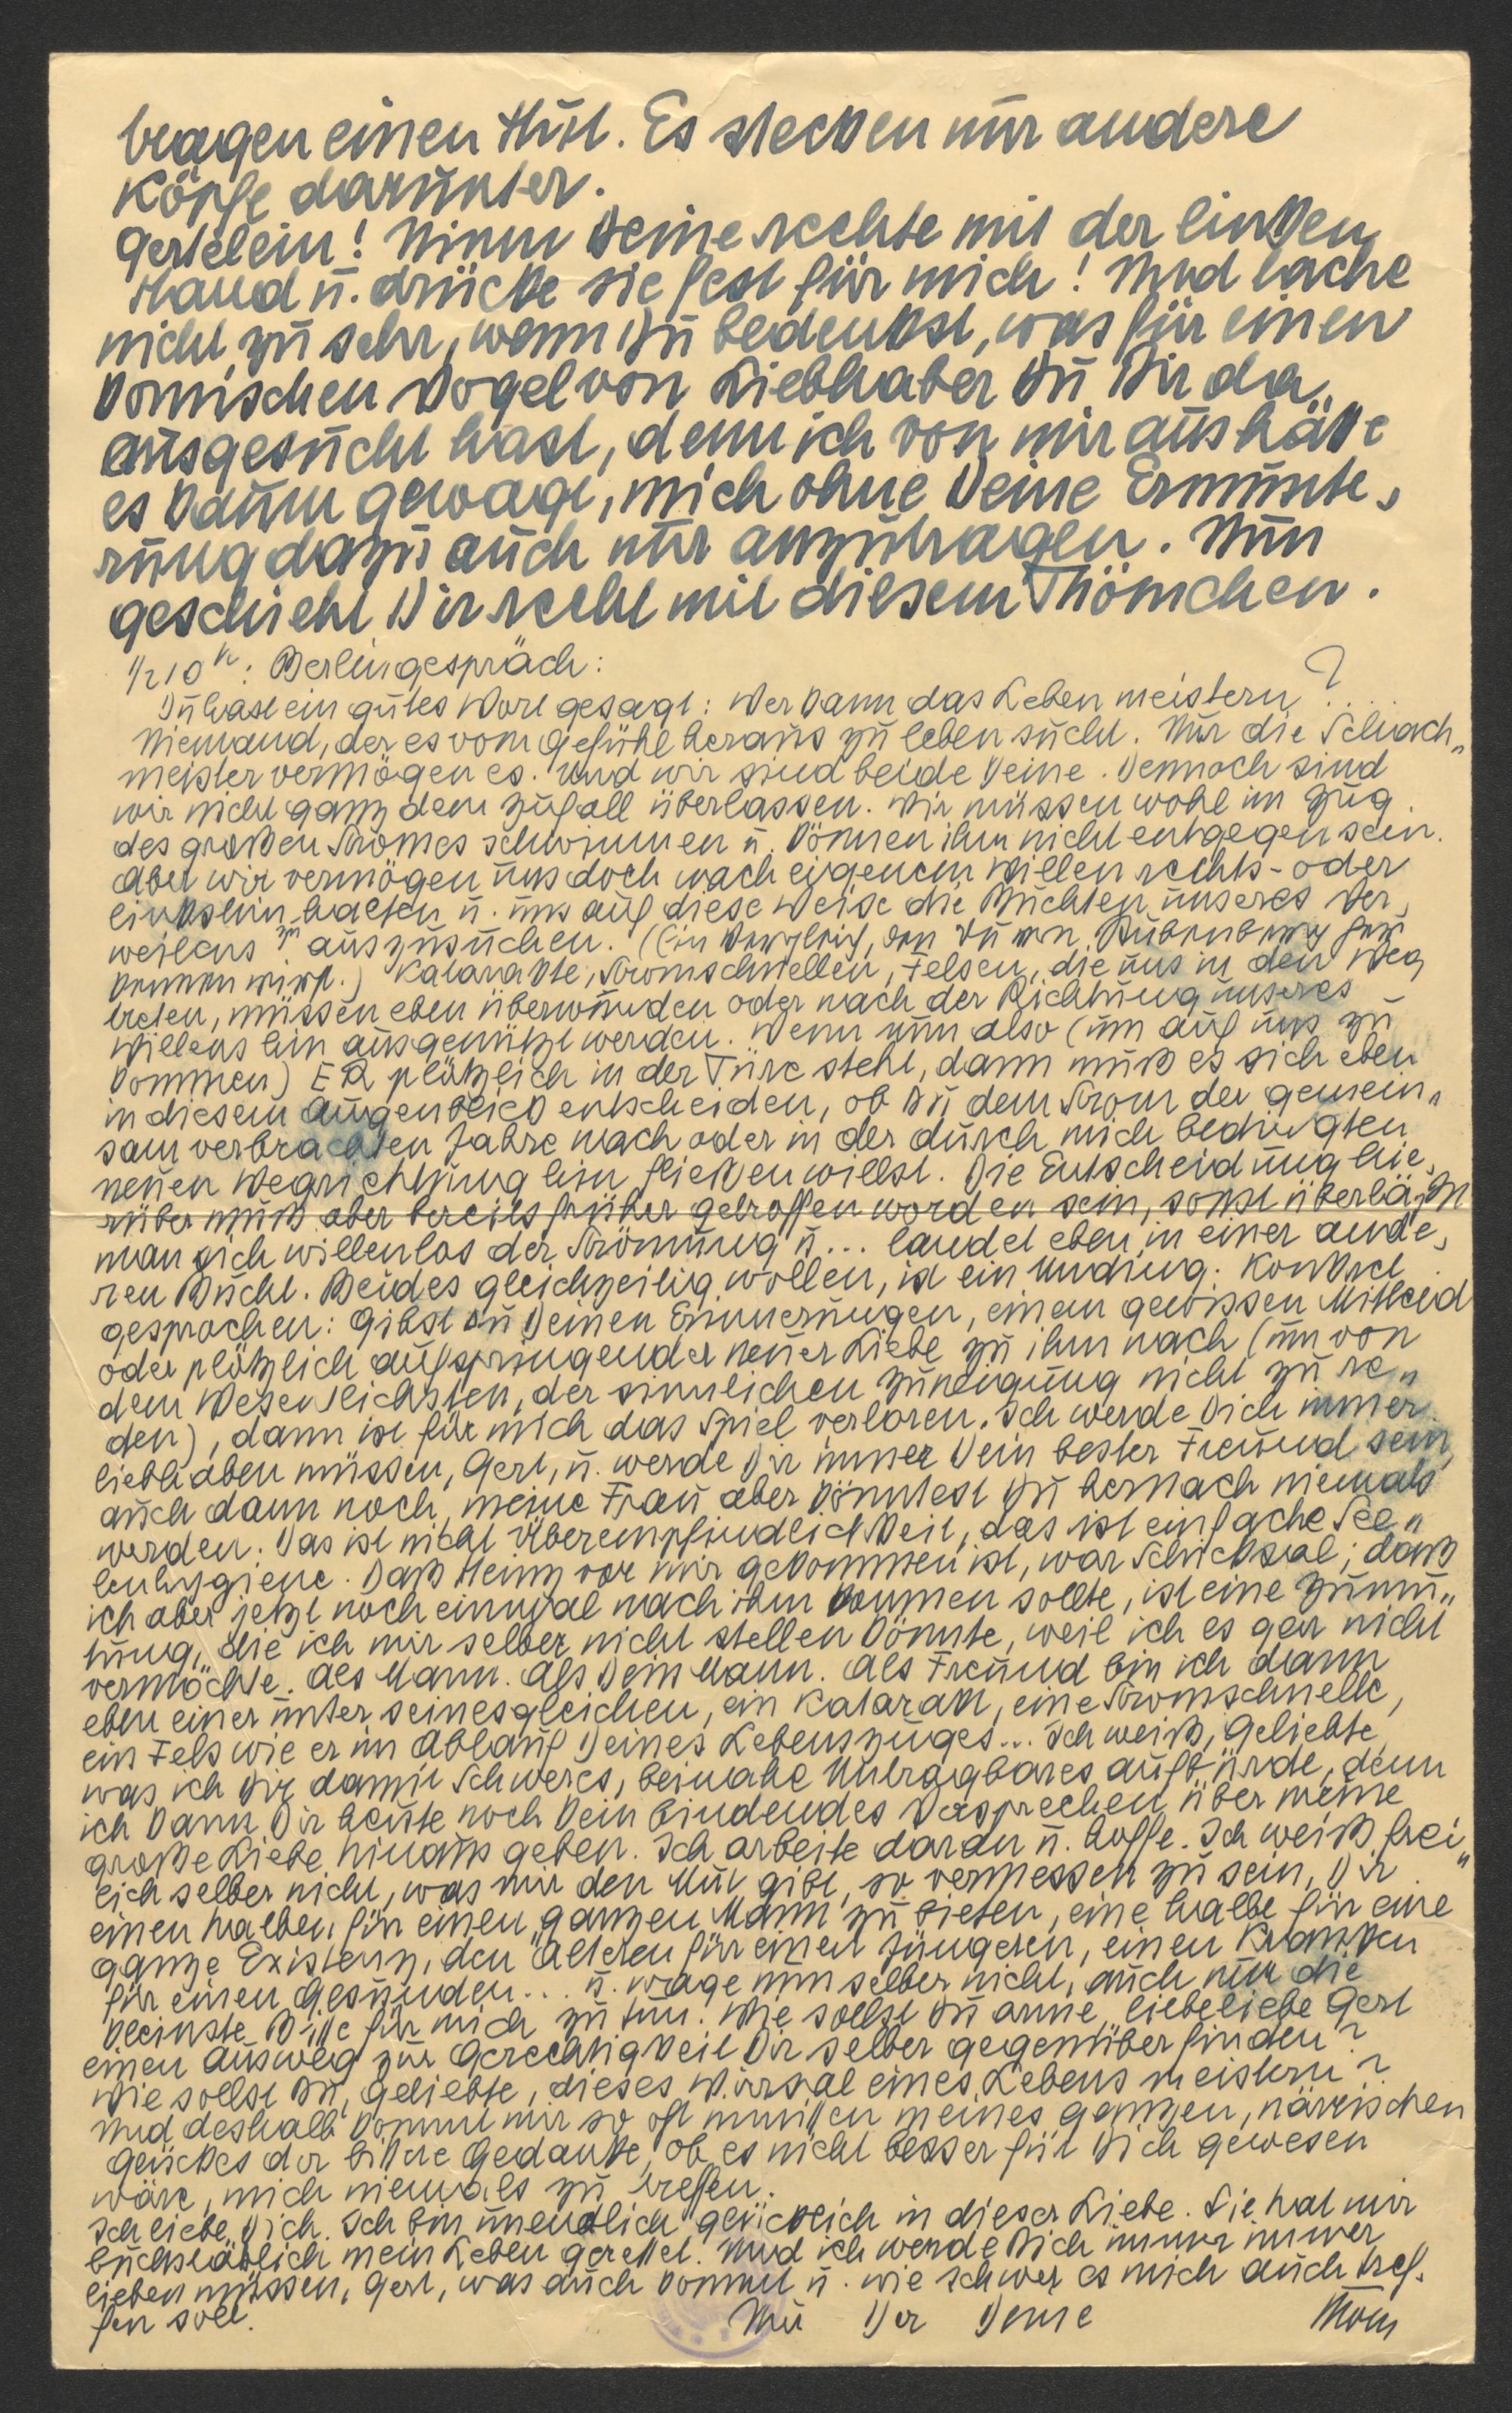 tragen einen Hut. Es stecken nur andere
Köpfe darunter.
Gertelein! Nimm Deine rechte mit der linken
Hand u. drücke sie fest für mich! Und lache
nicht zu sehr, wenn Du bedenkst, was für einen
komischen Vogel von Liebhaber Du Dir da
ausgesucht hast, denn ich von mir aus hätte
es kaum gewagt, mich ohne Deine Ermunte-
rung dazu auch nur anzutragen. Nun
geschieht Dir recht mit diesem Thömchen.
1/2 10 h: Berlingespräch:
Du hast ein gutes Wort gesagt: Wer kann das Leben meistern?..
Niemand, der es vom Gefühl heraus zu leben sucht. Nur die Schach-
meister vermögen es. Und wir sind beide keine. Dennoch sind
wir nicht ganz dem Zufall überlassen. Wir müssen wohl im Zug
des großen Stromes schwimmen u. können ihm nicht entgegen sein.
Aber wir vermögen uns doch nach eigenem Willen rechts- oder
linkshin halten u. uns auf diese Weise die Buchten unseres Ver-
weilens auszusuchen. (Ein Vergleich, den Du von her
kennen wirst.) Katarakte, Stromschnellen, Felsen, die uns in den Weg
treten, müssen eben überwunden oder nach der Richtung unseres
Willens hin ausgenützt werden. Wenn nun also (um auf uns zu
kommen) ER plötzlich in der Türe steht, dann muß es sich eben
in diesem Augenblick entscheiden, ob Du dem Strom der gemein-
sam verbrachten Jahre nach oder in der durch mich bedingten
neuen Wegrichtung hin fließen willst. Die Entscheidung hie-
rüber muß aber bereits früher getroffen worden sein, sonst überläßt
man sich willenlos der Strömung u... landet eben in einer ande-
ren Bucht. Beides gleichzeitig wollen, ist ein Unding. Konkret
gesprochen: Gibst Du Deinen Erinnerungen, einem gewissen Mitleid
oder plötzlich aufspringender neuer Liebe zu ihm nach (um von
dem Wesentlichsten, der sinnlichen Zuneigung nicht zu re-
den), dann ist für mich das Spiel verloren. Ich werde Dich immer
liebhaben müssen, Gert, u. werde Dir immer Dein bester Freund sein,
auch dann noch, meine Frau aber könntest Du hernach niemals
werden. Das ist nicht Überempfindlichkeit, das ist einfache See-
lenhygiene. Daß Heinz vor mir gekommen ist, war Schicksal; daß
ich aber jetzt noch einmal nach ihm kommen sollte, ist eine Zumu-
tung, die ich mir selber nicht stellen könnte, weil ich es gar nicht
vermöchte. Als Mann. Als Dein Mann. Als Freund bin ich dann
eben einer unter seinesgleichen, ein Katarakt, eine Stromschnelle,
ein Fels wie er im Ablauf Deines Lebenszuges... Ich weiß, Geliebte,
was ich Dir damit Schweres, beinahe Untragbares aufbürde, denn
ich kann Dir heute noch kein bindendes Versprechen über meine
große Liebe hinaus geben. Ich arbeite daran u. hoffe. Ich weiß frei-
lich selber nicht, was mir den Mut gibt, so vermessen zu sein, Dir
einen halben für einen ganzen Mann zu bieten, eine halbe für eine
ganze Existenz, den Älteren für einen Jüngeren, einen Kranken
für einen Gesunden... u. wage nun selber nicht, auch nur die
kleinste Bitte für mich zu tun. Wie sollst Du arme, liebe liebe Gert
einen Ausweg zur Gerechtigkeit Dir selber gegenüber finden?
Wie sollst Du, Geliebte, dieses Wirrsal eines Lebens meistern?
Und deshalb kommt mir so oft inmitten meines ganzen, närrischen
Glückes der bittere Gedanke, ob es nicht besser für Dich gewesen
wäre, mich niemals zu treffen.
Ich liebe Dich. Ich bin unendlich glücklich in dieser Liebe. Sie hat mir
buchstäblich mein Leben gerettet. Und ich werde Dich immer immer
lieben müssen, Gert, was auch kommt u. wie schwer es mich auch tref-
fen soll.
Der Deine Thom